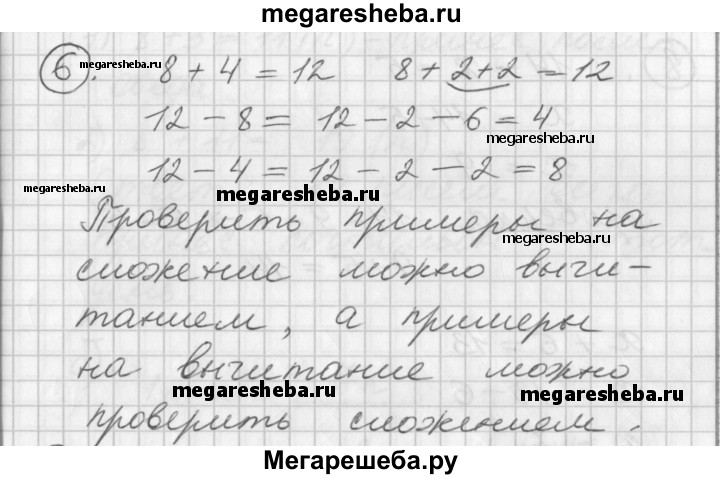 megaresheba.ru
6. megaresheba.ru 8 + 4 = 12 8 + 2 + 2 = 12
12 - 8 = 12 - 2 - 6 = 4
megaresheba.ru
12 - 4 = 12 - 2 - 2 = 8
megaresheba.ru
megaresheba.ru
Проверить примеры на
megaresheba.ru
сложение можно вычи-
танием, а примеры
на вычитание можно
megaresheba.ru
megaresheba.ru
проверить сложением.
Мегарешеба.ру